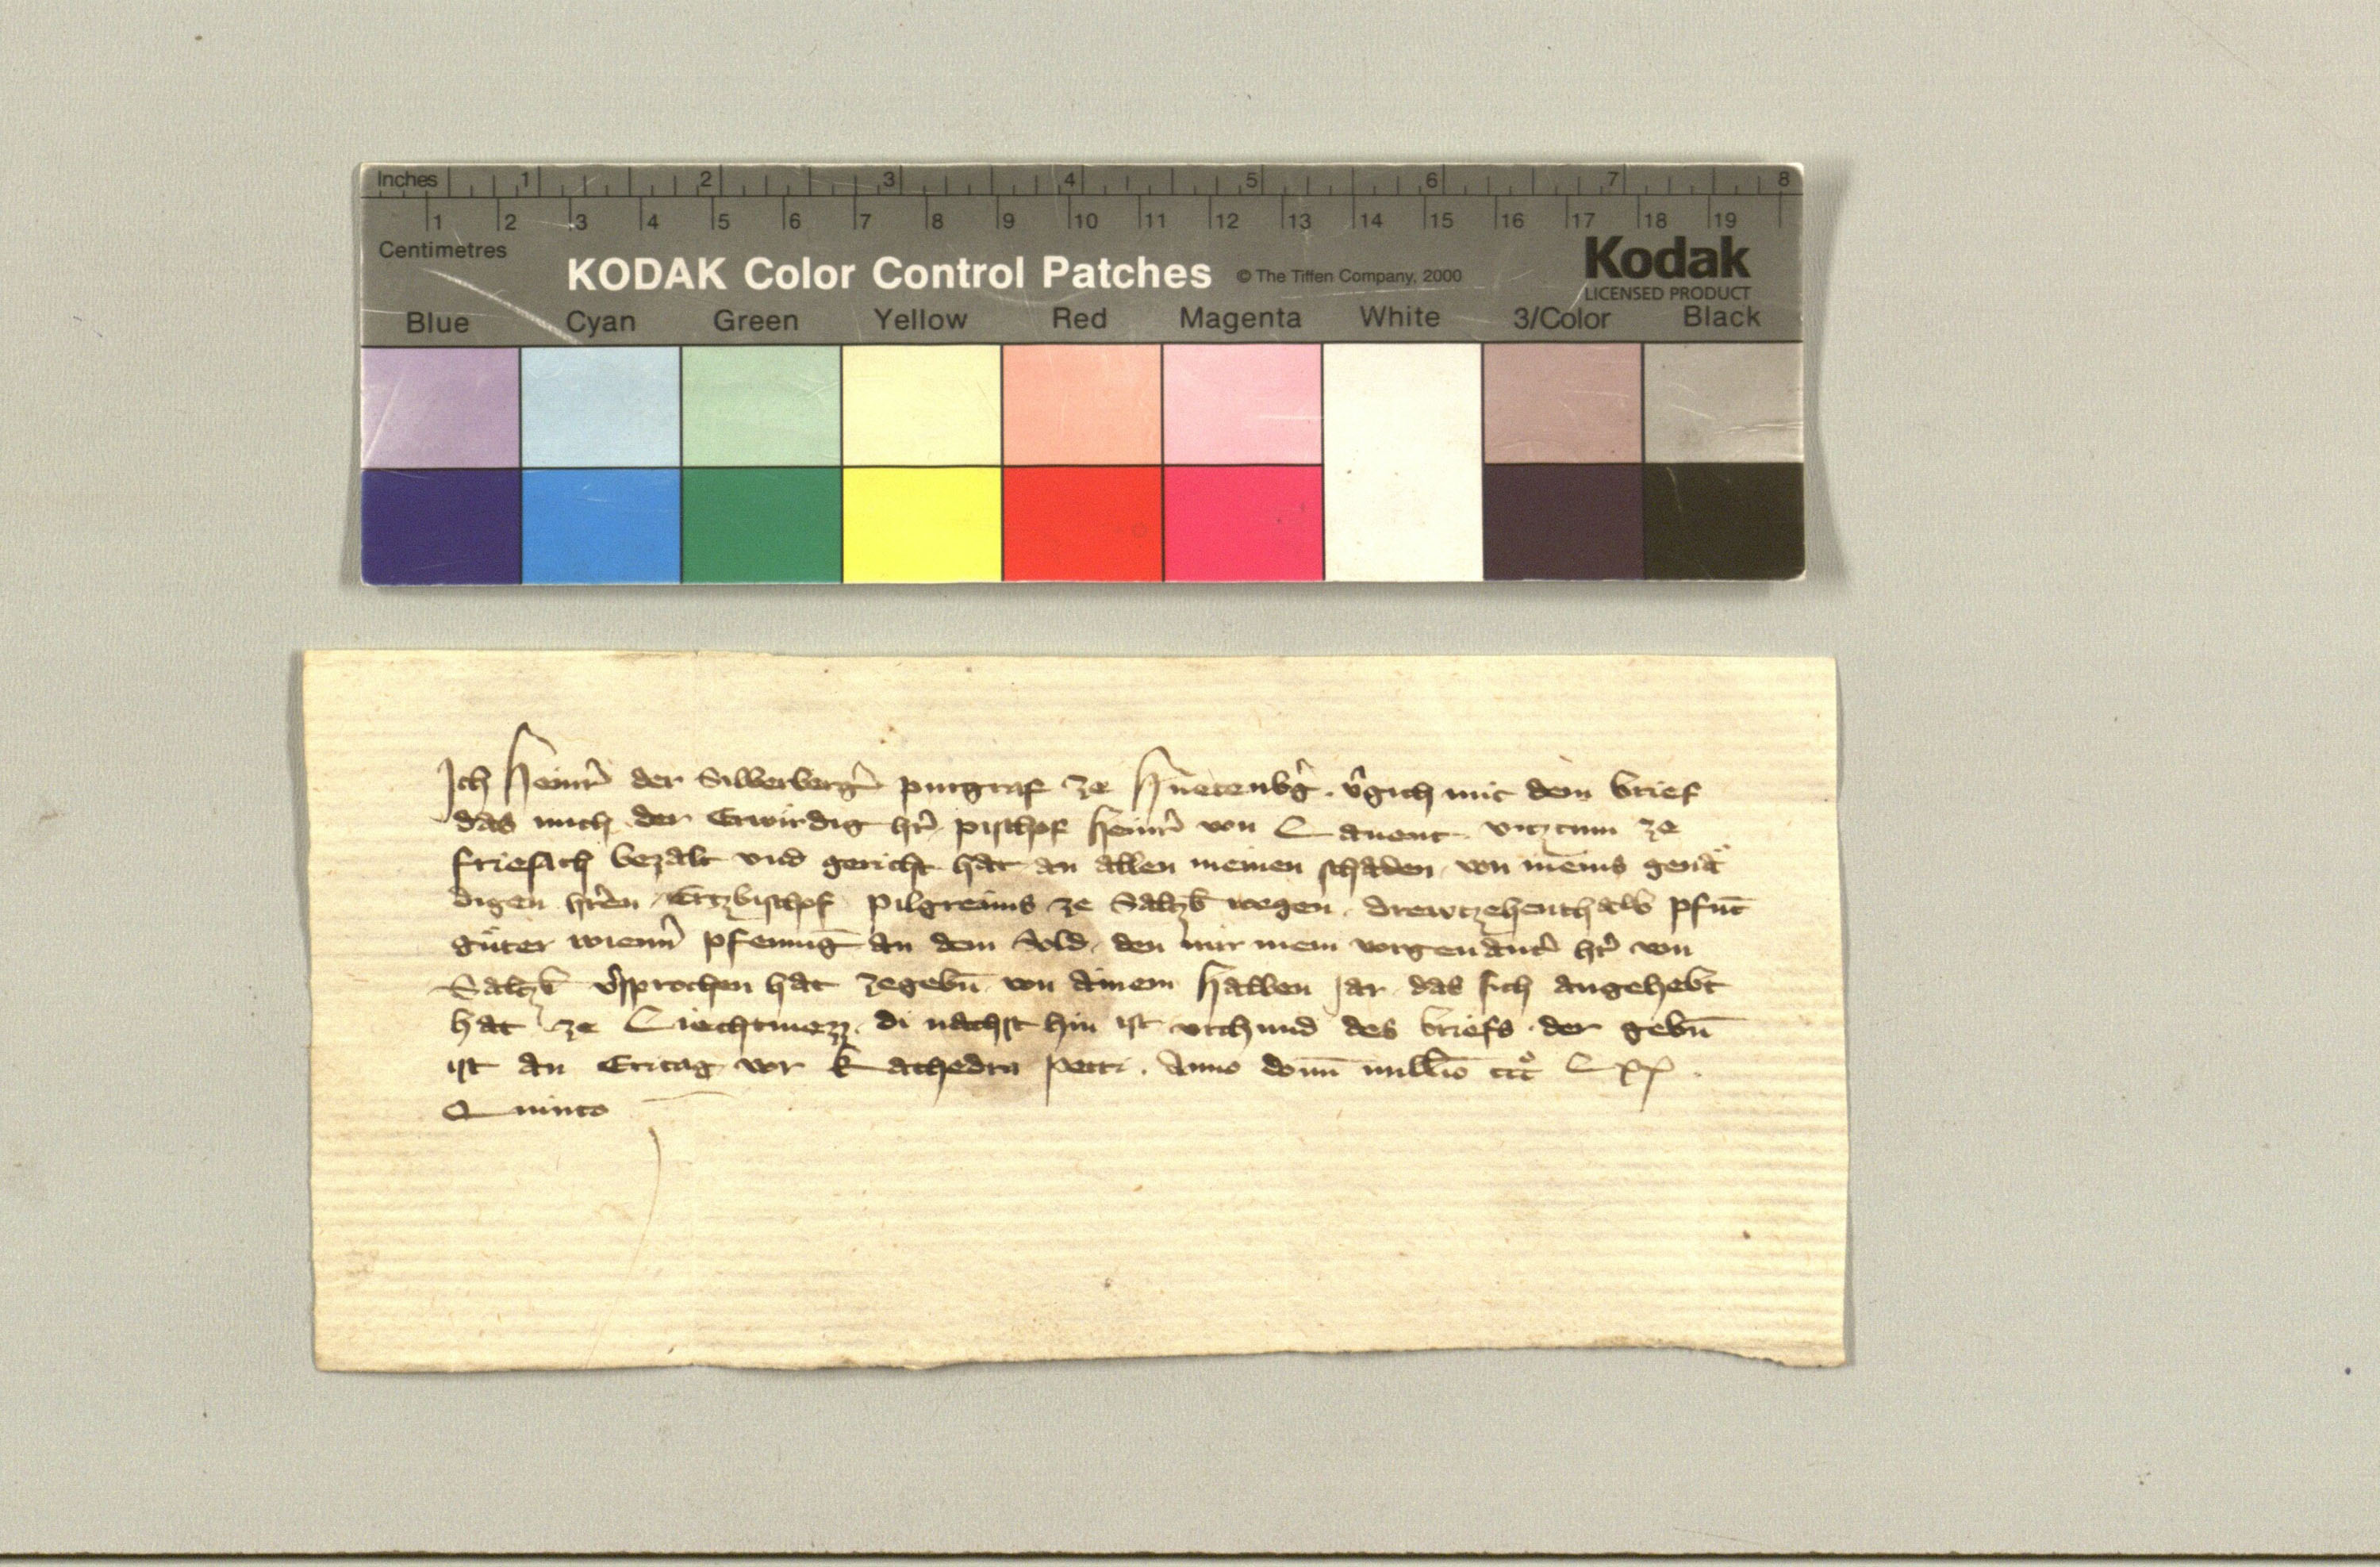 Inches 1 2 3 4 5 6 7 8
1 2 3 4 5 6 7 8 9 10 11 12 13 14 15 16 17 18 19
Centimetres
KODAK Color Control Patches © The Tiffen Company, 2000 Kodak
LICENSED PRODUCT
Blue Cyan Green Yellow Red Magenta White 3/Color Black
Ich Heinr̄ der Silberberḡ purgraf ze v̄gich mit dem brief
das mich der Erwirdig hr̄ pischof Heinr̄ von Lauent vitztum ze
friesach bezalt vnd gericht hat an allen meinen schaden von meins genä
digen hr̄en Ertzbischof pilgreims ze Saltzb̄ wegen drewtzehenthalb pfūt
güter wienn̄ pfenninḡ an dem Sold den mir mein vorgenant̄ hr̄ von
Saltzb̄ v̄sprochen hat zegebn̄ von ainem halben Jar das sich angehebt
hat ze Liechtmezz di nachst hin ist vrchund des briefs der gebn̄
ist an Eritag vor kathedra petri . Anno domī mill̄io ccc° Lxx .
Quinto